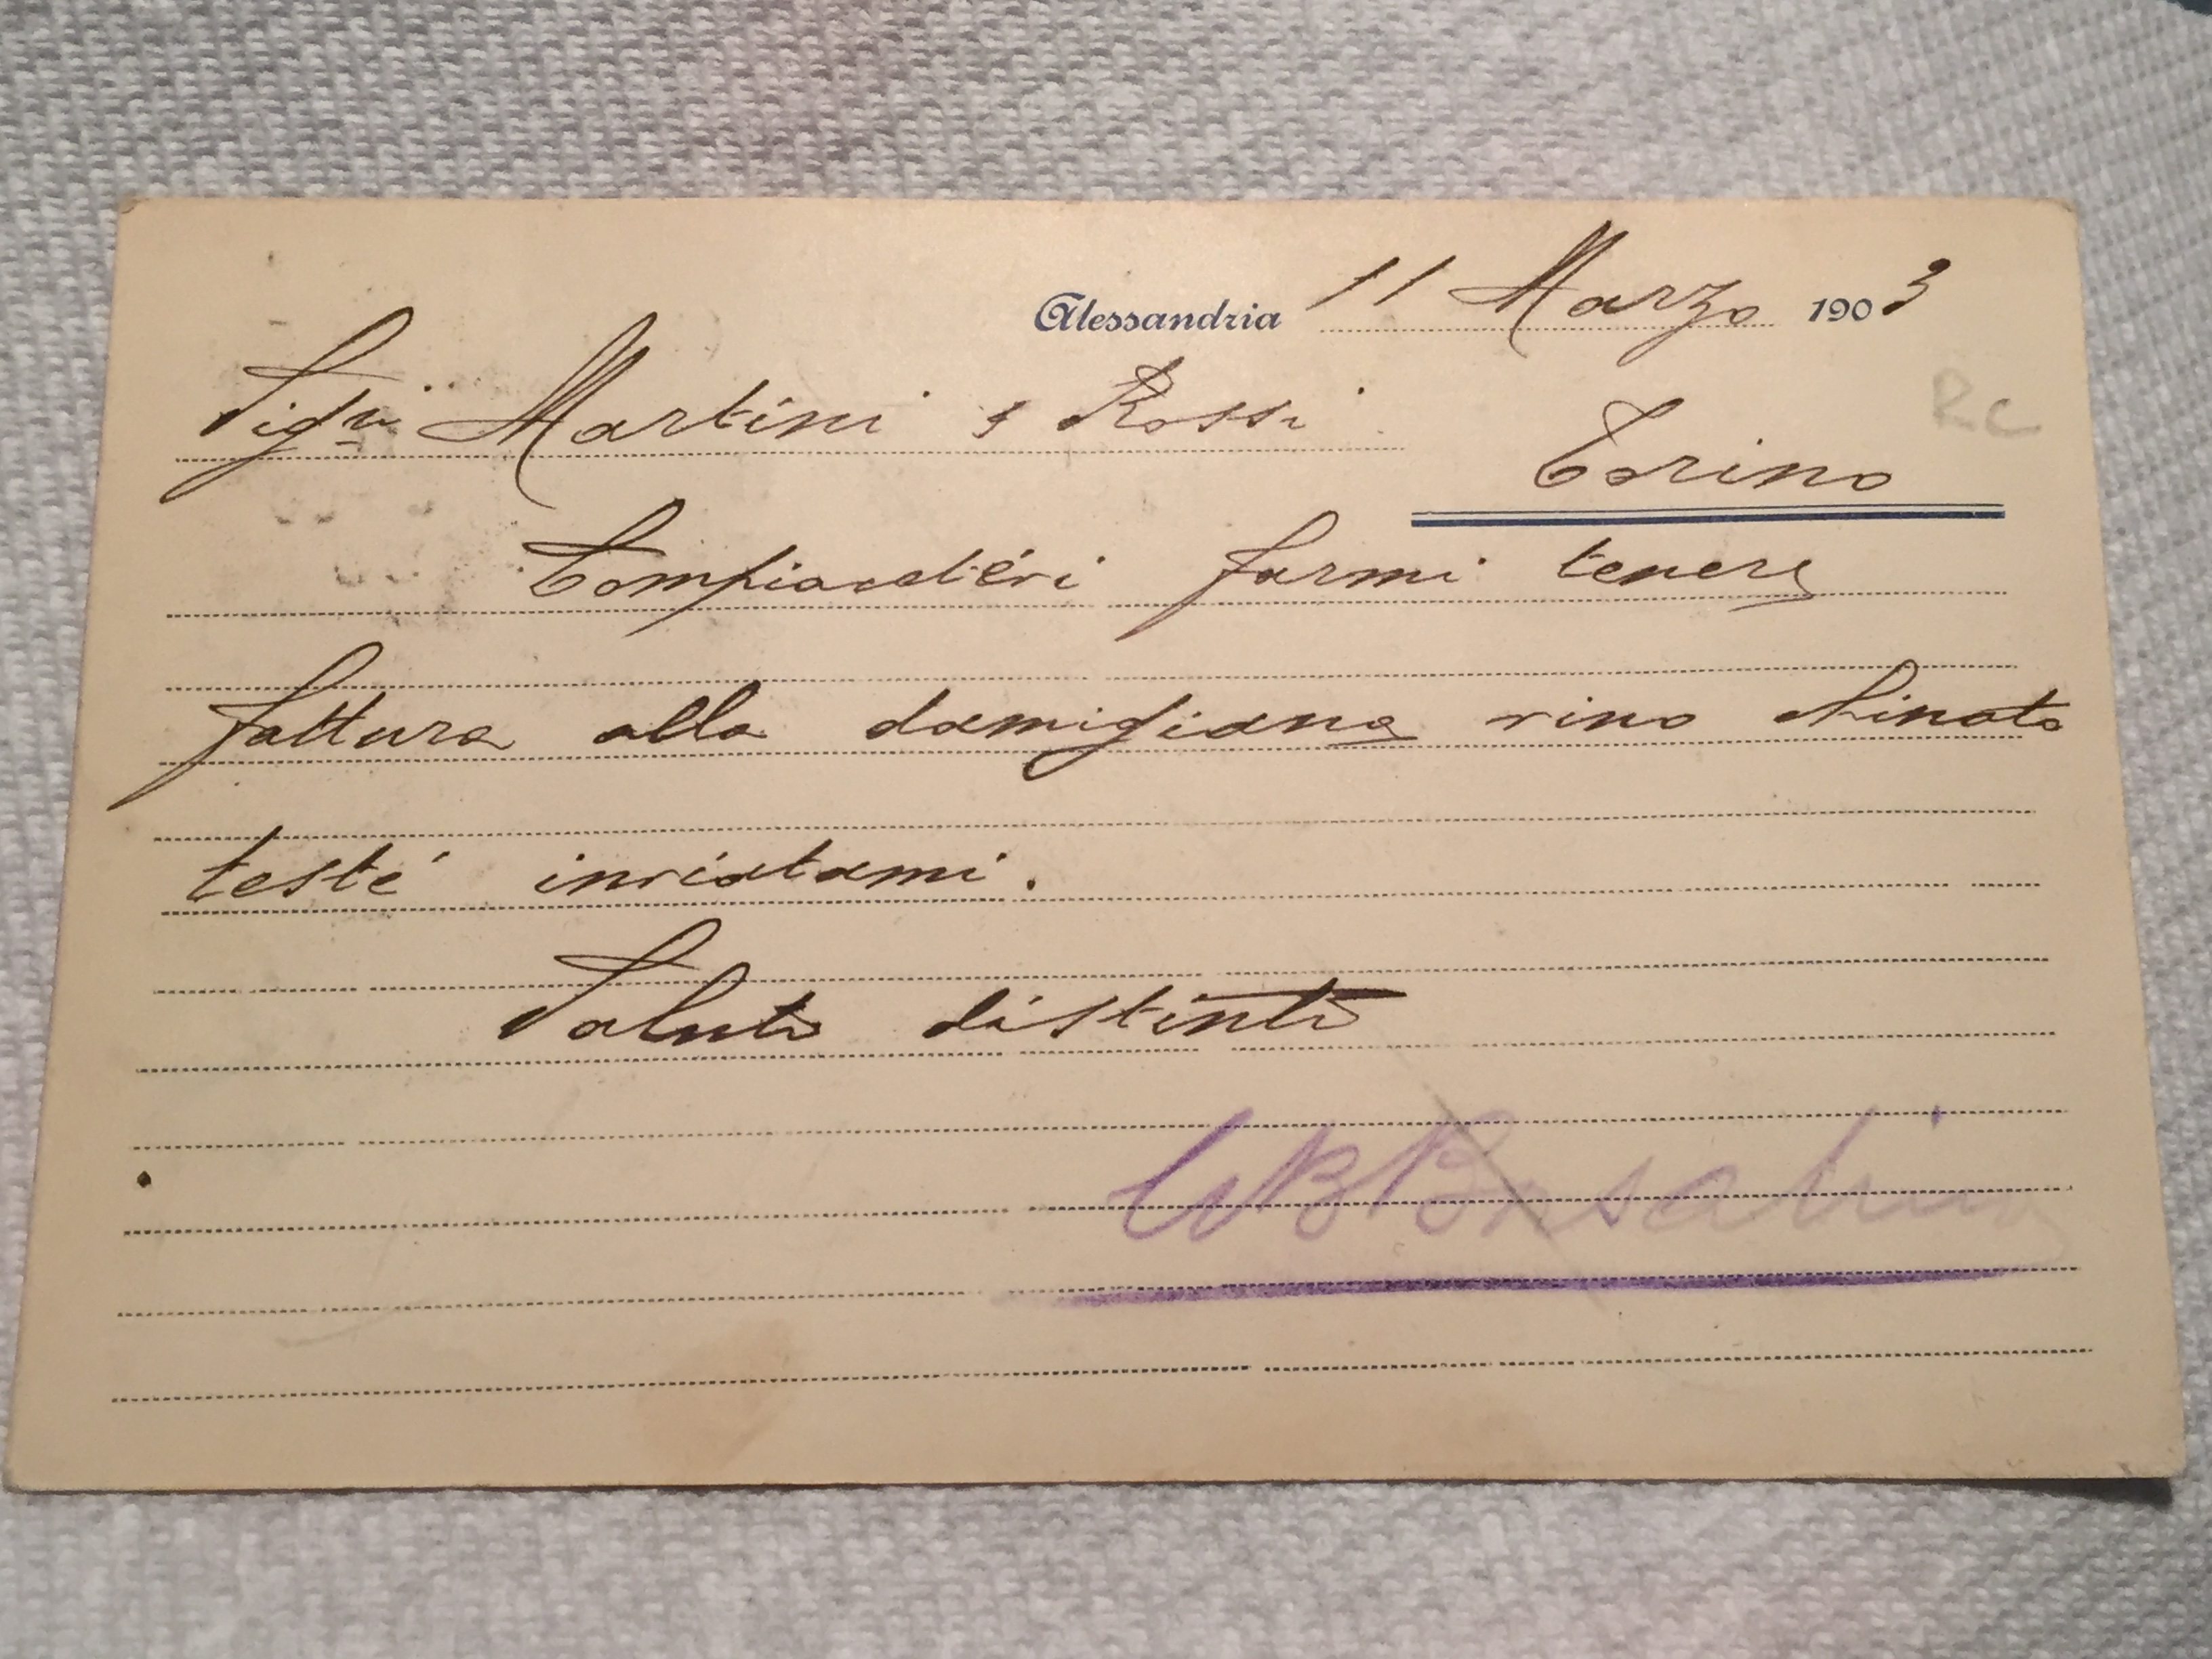 Alessandria 11 Marzo 1903
Sigri Martini & Rossi
R.C
Torino
Compiacetevi farmi tenere
fattura alla damigiana vino chinato
testé inviatami.
Saluti distinti